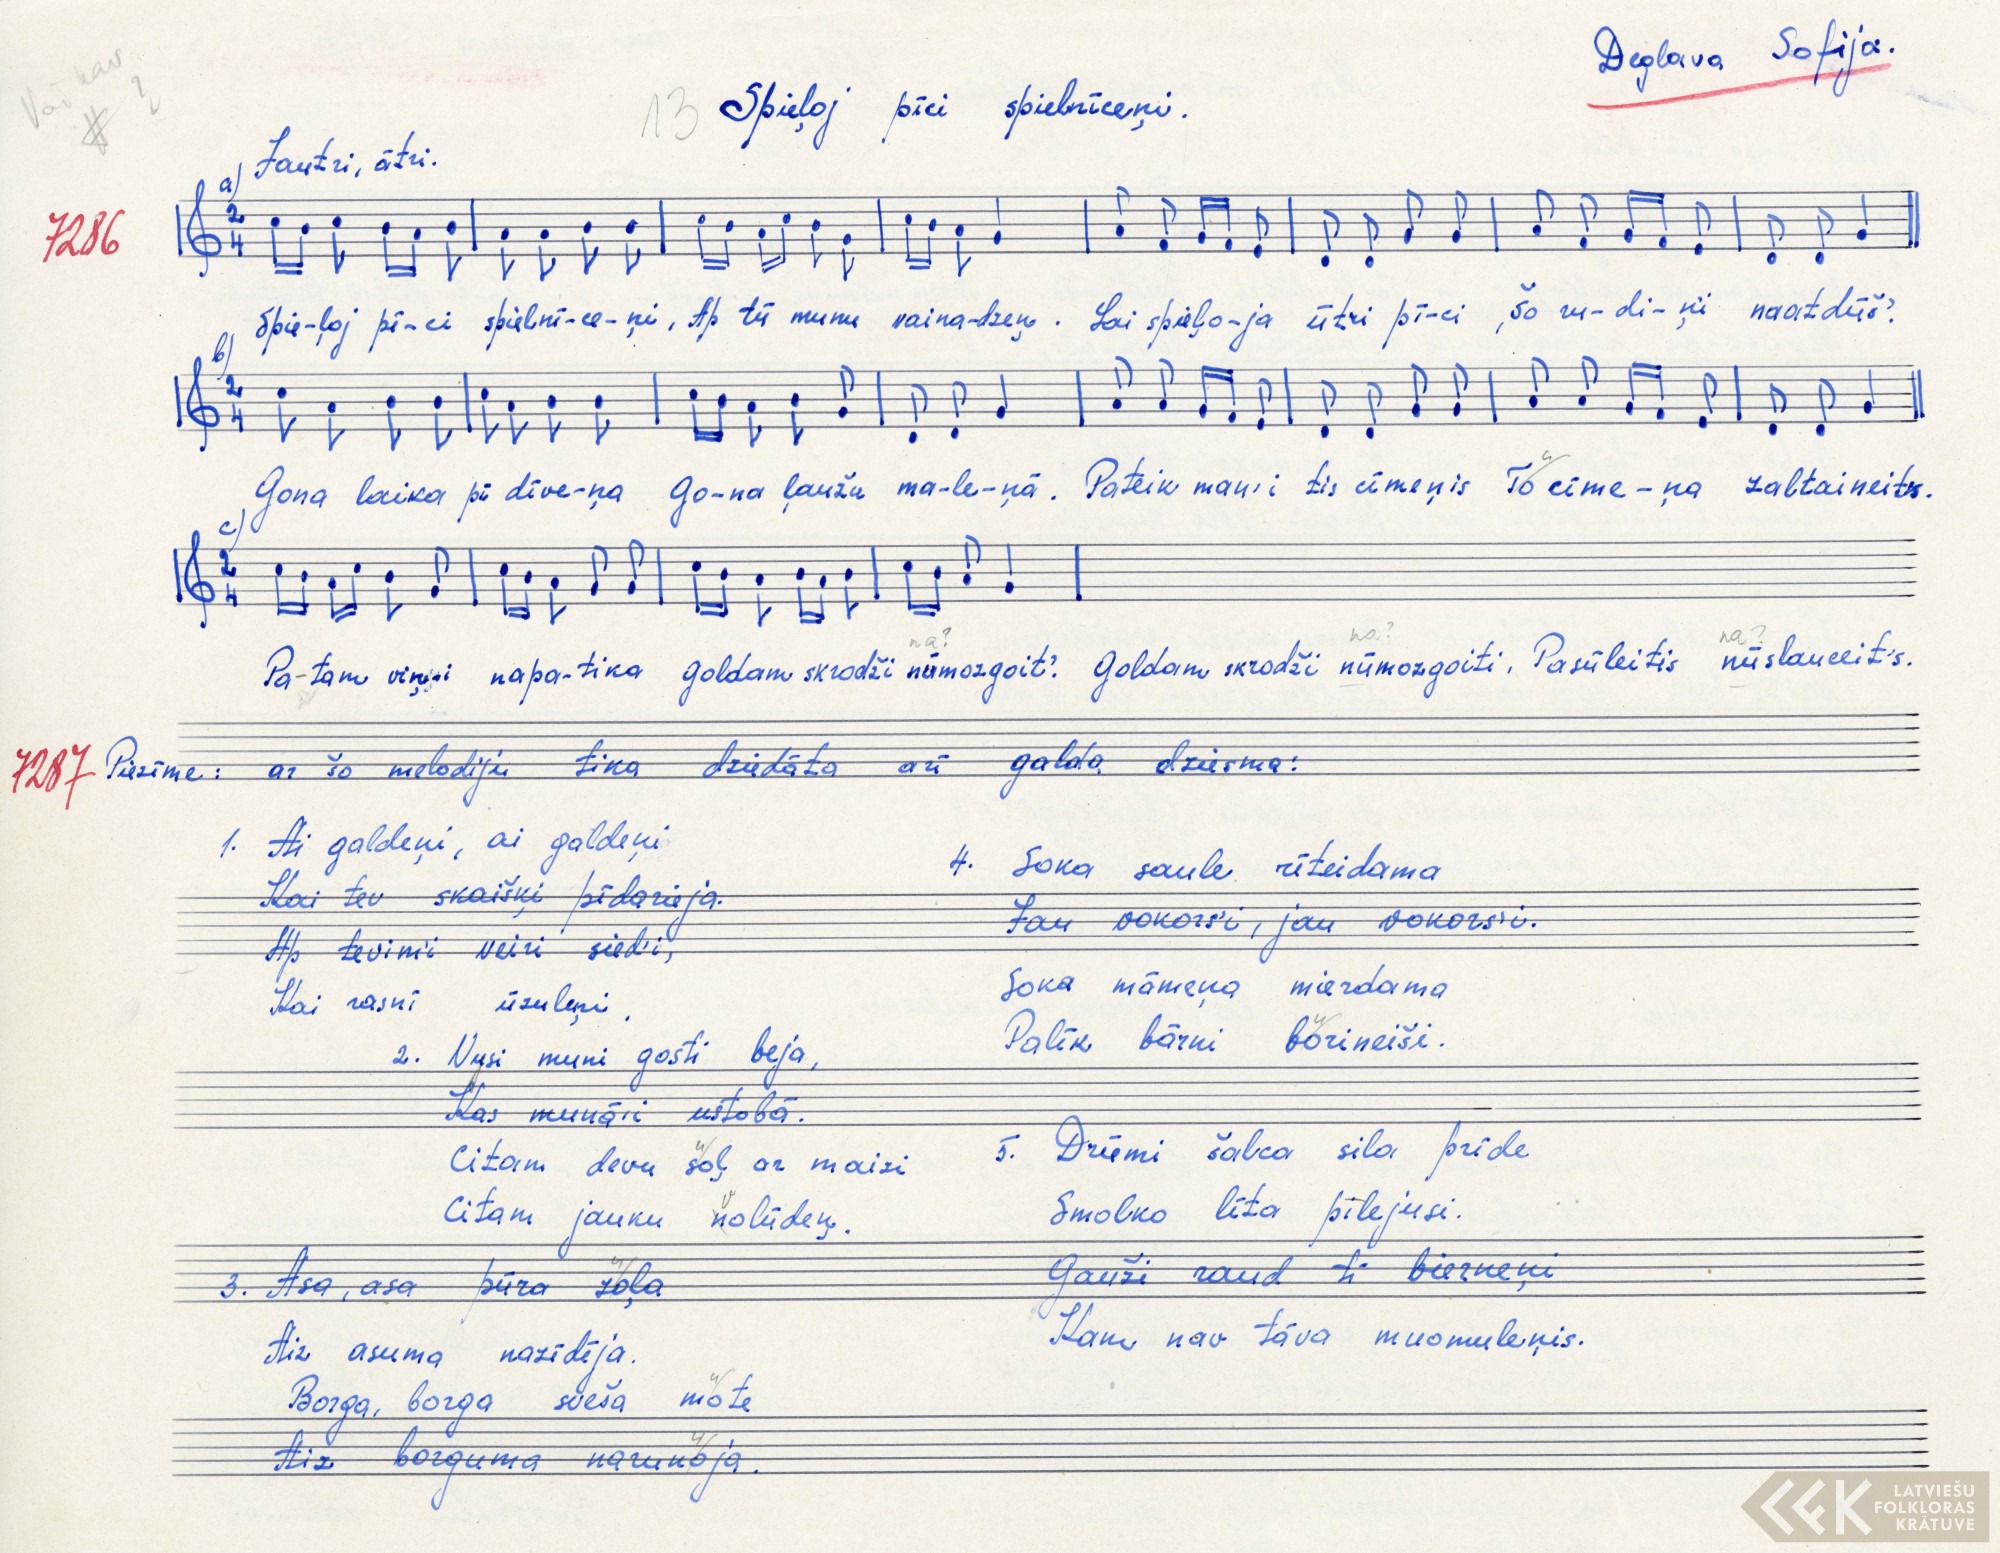 Deglava Sofija.
Vai nav
# ?
13 Spieļoj pīci spielnīceņi.
a) Jautri, ātri.
7286
2/4
Spie-ļoj pī-ci spielnī-ce-ņi, Ap tū munu vaina-dzeņ. Lai spieļo-ja ūtri pī-ci, šo ru-di-ņi naatdūš'.
b)
2/4
Gona laika pī dīve-ņa Go-na ļaužu ma-le-ņā. Pateik man'i tis cīmeņis To cīme-ņa zaltaineits.
c)
2/4
na? na? na?
Pa-tam viņņi napa-tika goldam skrodži nūmozgoit'. Goldam skrodži nūmozgoiti, Pasūleitis nūslauceit's.
7287 Piezīme: ar šo melodiju tika dziedāta arī galda dziesma:
1. Ai galdeņi, ai galdeņi
Kai tev skaišķi pīdarieja.
Ap tevim'i veiri sied'i,
Kai rasnī ūzuleņi.
2. Vysi muni gosti beja,
Kas munā'i ustobā.
Citam devu soļ ar maizi
Citam jauku volūdeņ.
3. Asa, asa pūra zoļa
Aiz asuma nazīdēja.
Borga, borga sveša mote
Aiz borguma narunoja.
4. Soka saule rīteidama
Jau vokors'i, jau vokors'i.
Soka māmeņa mierdama
Palīk bārni borineiši.
5. Drūmi šalca sila prīde
Smolko līta pīlejusi.
Gauži raud tī bierneņi
Kam nav tāva muomuleņis.
LATVIEŠU
FOLKLORAS
KRĀTUVE